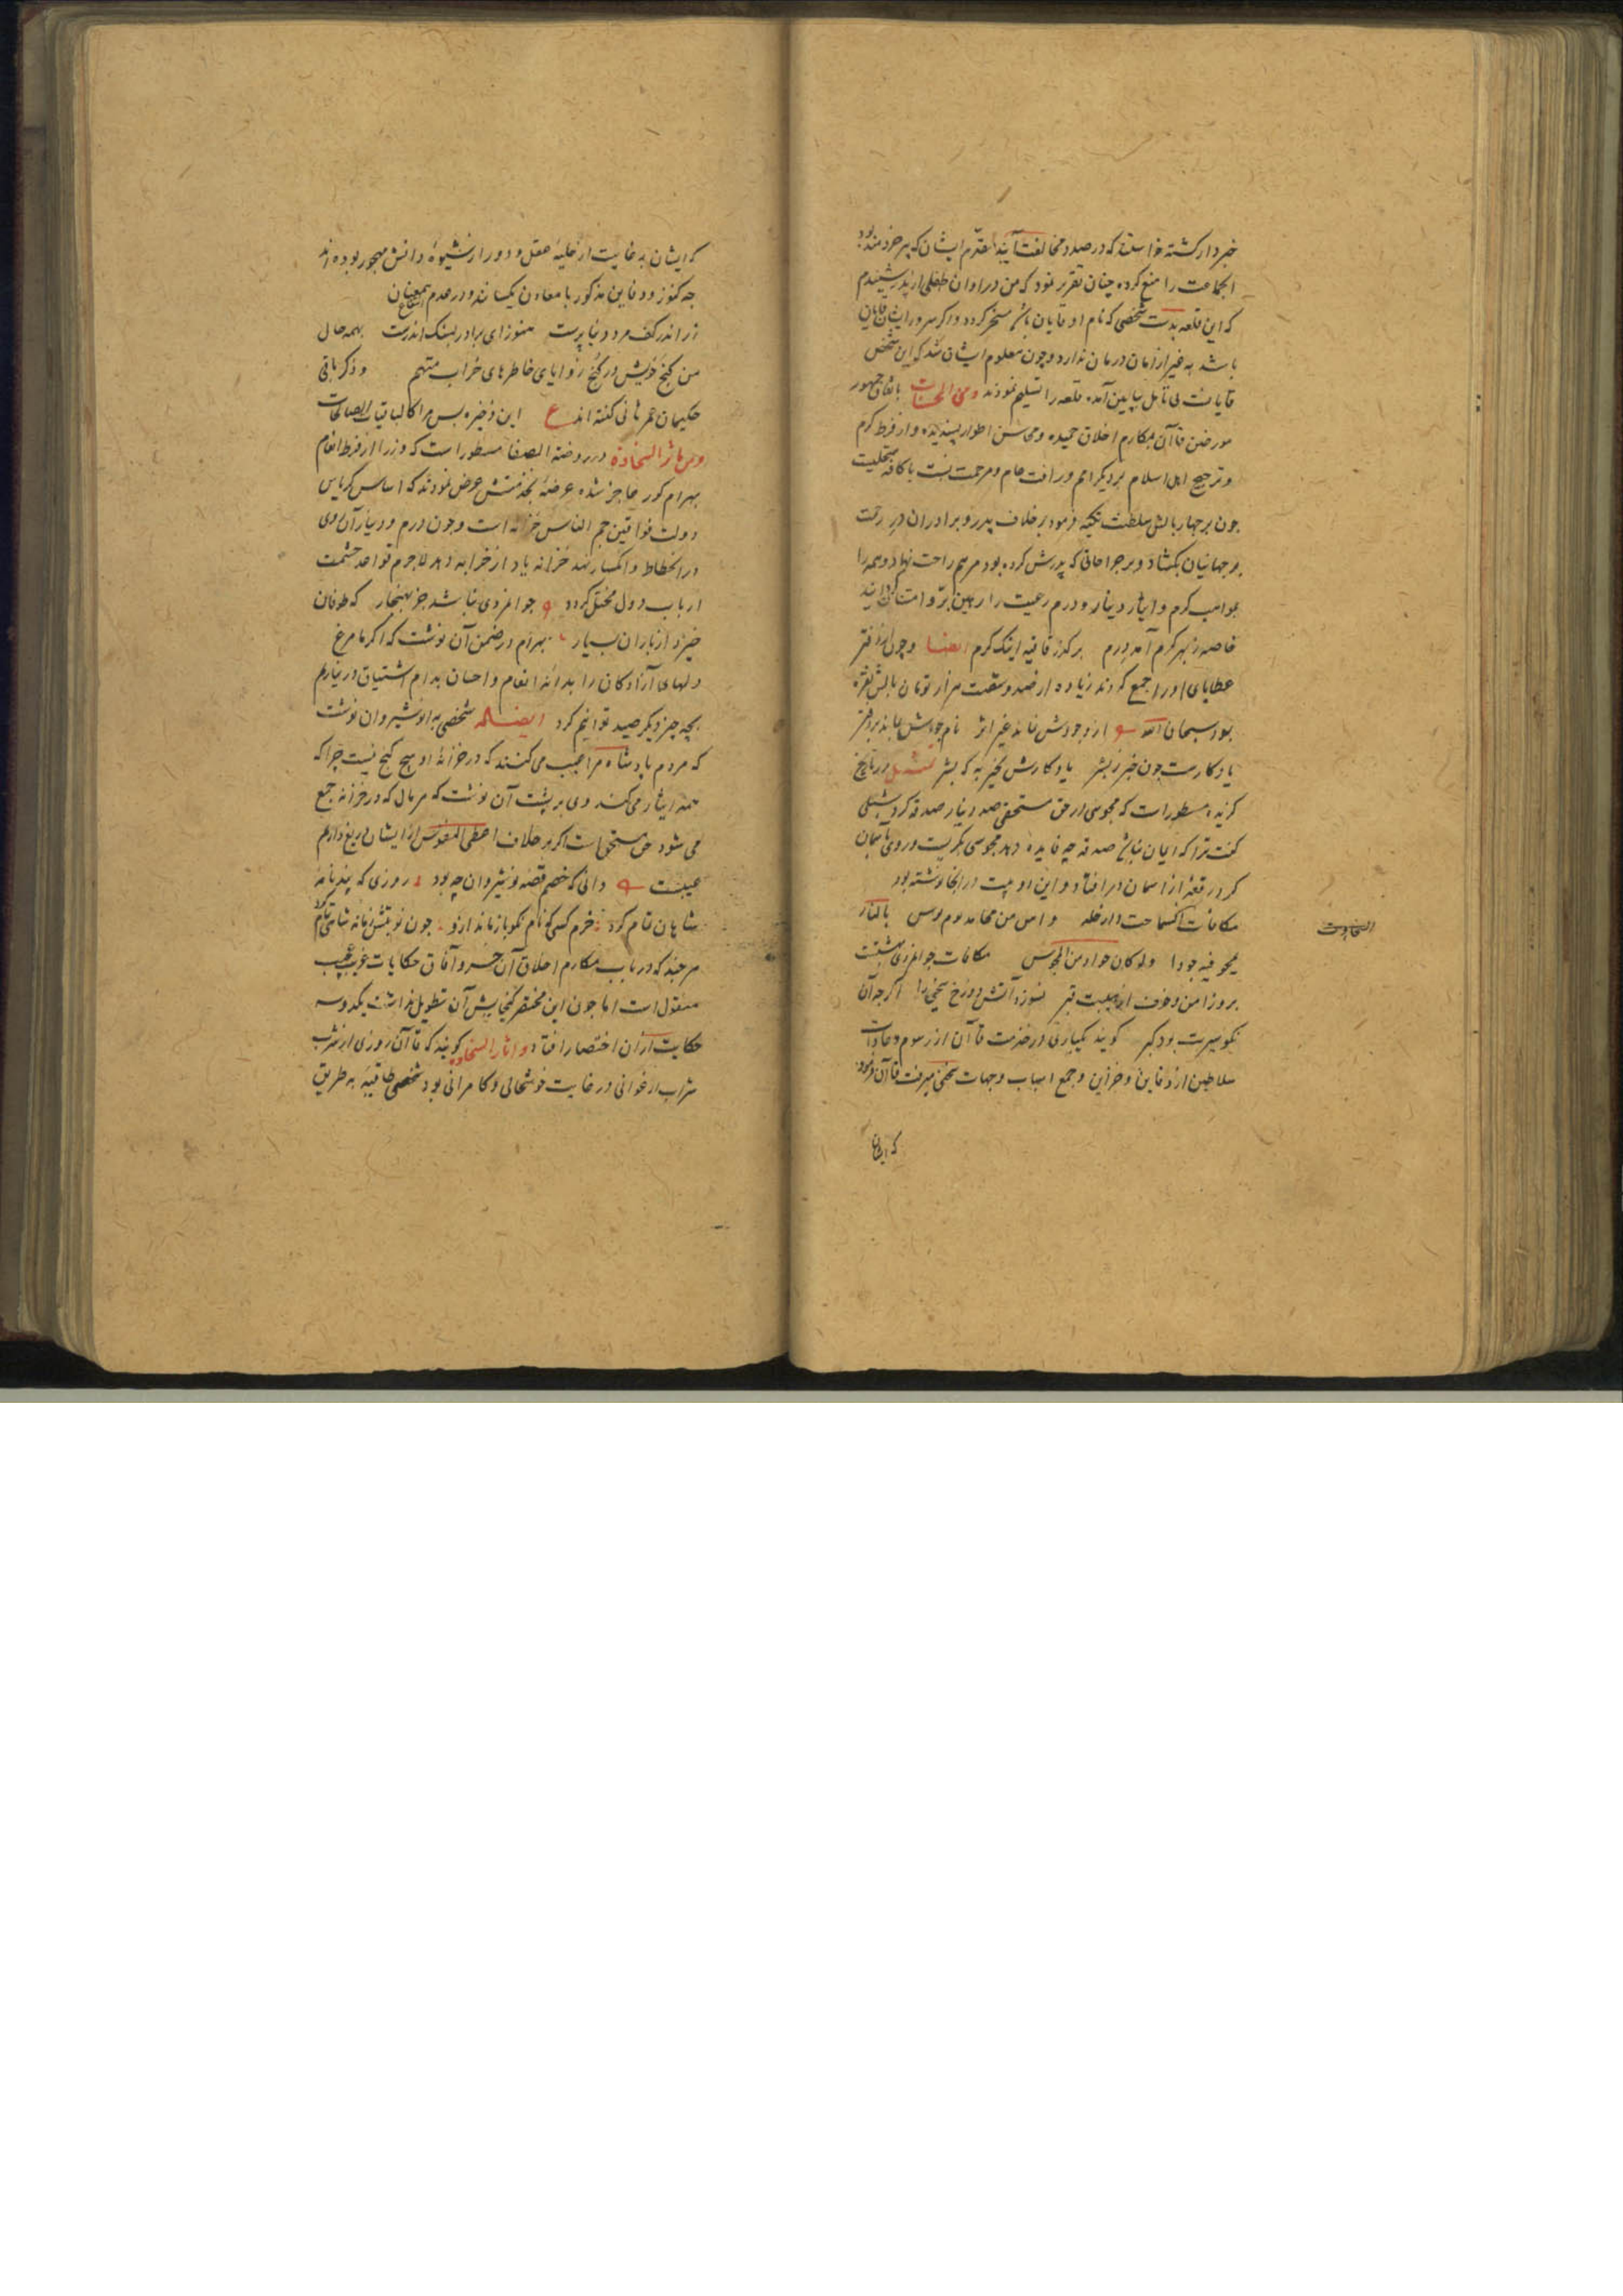 خبردار کشته خواستند که در صدد مخالفت آیند مقدم ایشان که پیر خردمند بود
انجماعت را منع کرده چنان تقریر نمود که من در اوان طفلی از پدر شنیدم
که این قلعه بدست شخصی که نام او قایان باشد مسخر کردد و اکر سرور ایشان قایان
باشد به غیر از امان درمان ندارد و چون معلوم ایشان شد که این شخص
قایانست بی تامل بپایین آمده قلعه را تسلیم نمودند و من الحسنات باتفاق جمهور
مورخین قاآن بمکارم اخلاق حمیده و محاسن اطوار پسندیده و از فرط کرم
و ترجیح اهل اسلام بر دیکر امم و رافت عام و مرحمت نسبت با کافه
چون بر چهار بالش سلطنت تکیه فرمود بر خلاف پدر و برادران در رحمت
بر جهانیان بکشاد و بر جراحاتی که پدرش کرده بود مرهم راحت نهاد و همه را
بمواهب کرم و ایثار دینار و درم رعیت را رهین بر و امتنان
خاصه ز بهر کرم آمد درم بر کذر قافیه اینک کرم ایضا و چون از دفتر
عطایای او را جمع کردند زیاده از شصد و شصت هزار تومان بالش نقره
بود سبحان الله از وجودش نماند غیر اثر نام جودش بماند بر دفتر
یادکارست چون خبر ز بشر یادکارش بخیر به که بشر در تاریخ
کزیده مسطور است که مجوسی در حق مستحقی صد دینار صدقه کرد شبلی
کفت ترا که ایمان نباشد صدقه چه فایده دهد مجوسی بکریست و روی به آسمان
کرد رقعهٔ از اسمان در افتاد و این دو بیت در انجا نوشته بود
مکافات السماحت دار خلد و امن من مخافه یوم بوس بالنار
بمحرقه جوادا ولو کان جواد من المجوس مکافات جوانمردی بهشتت
بروز امن و خوف از هیبت قبر نسوزد آتش دوزخ سخی را اکر چه آن
نکو سیرت بود کبر کویند یکباری در خدمت قاآن از رسوم و عادات
سلاطین از دفاین و خزاین و جمع اسباب و جهات سخن میرفت قاآن فرمود
که ایشان
السخاوت
که ایشان به غایت از حلیهٔ عقل و دور از شیوهٔ دانش مهجور بوده اند
چه کنوز و دفاین مذکور با معادن یکسانند و در عدم
زر اندر کف مرد دنیا پرست هنوز ای برادر بسنک اندرست بهمه حال
من کنج خویش در کنج زوایای خاطرهای خراب متهم و ذکر باقی
حکیمان عمر ثانی کفته اند ع این ذخیره بس مرا کالباقیات الصالحات
و من ماثر السخاوة در روضة الصفا مسطور است که وزرا از فرط انعام
بهرام کور عاجز شده عرضهٔ بخدمتش عرض نمودند که اساس کریاس
دولت خواقین جم الناس خزانه است و چون درم و دینار آن روی
در انحطاط و انکسار نهد خزانه یاد از خرابه دهد لاجرم قواعد حشمت
ارباب دول مختل کردد جوانمردی نباشد جز بهنجار که طوفان
خیزد از باران بسیار بهرام در ضمن آن نوشت که اکر ما مرغ
دلهای آزادکان را بدانهٔ انعام و احسان بدام اشتیاق در نیاریم
بچه چیز دیکر صید توانیم کرد ایضا له شخصی به انوشیروان نوشت
که مردم پادشاه مرا عیب می کنند که در خزانهٔ او هیچ کنج نیست چرا که
همه ایثار می کند وی بر پشت آن نوشت که هر مال که در خزانه جمع
می شود حق مستحقانست اکر بر خلاف از ایشان دریغ داریم
عیبست دانی که خصم قصه نوشیروان چه بود روزی که پند نامهٔ
شاهان تمام کرد خرم کسی کو نام نکو باز ماند ازو چون نوبتش زمانه شاهی
هر چند که در باب مکارم اخلاق آن خسرو آفاق حکایات غریب عجیب
منقول است اما چون این مختصر کنجایش آن تطویل نداشت یکدو سه
حکایت ازان اختصار افتاد و اثار السخاوة کویند که قاآن روزی از شرب
شراب ارغوانی در غایت خوشحالی و کامرانی بود شخصی طاقیه به طریق